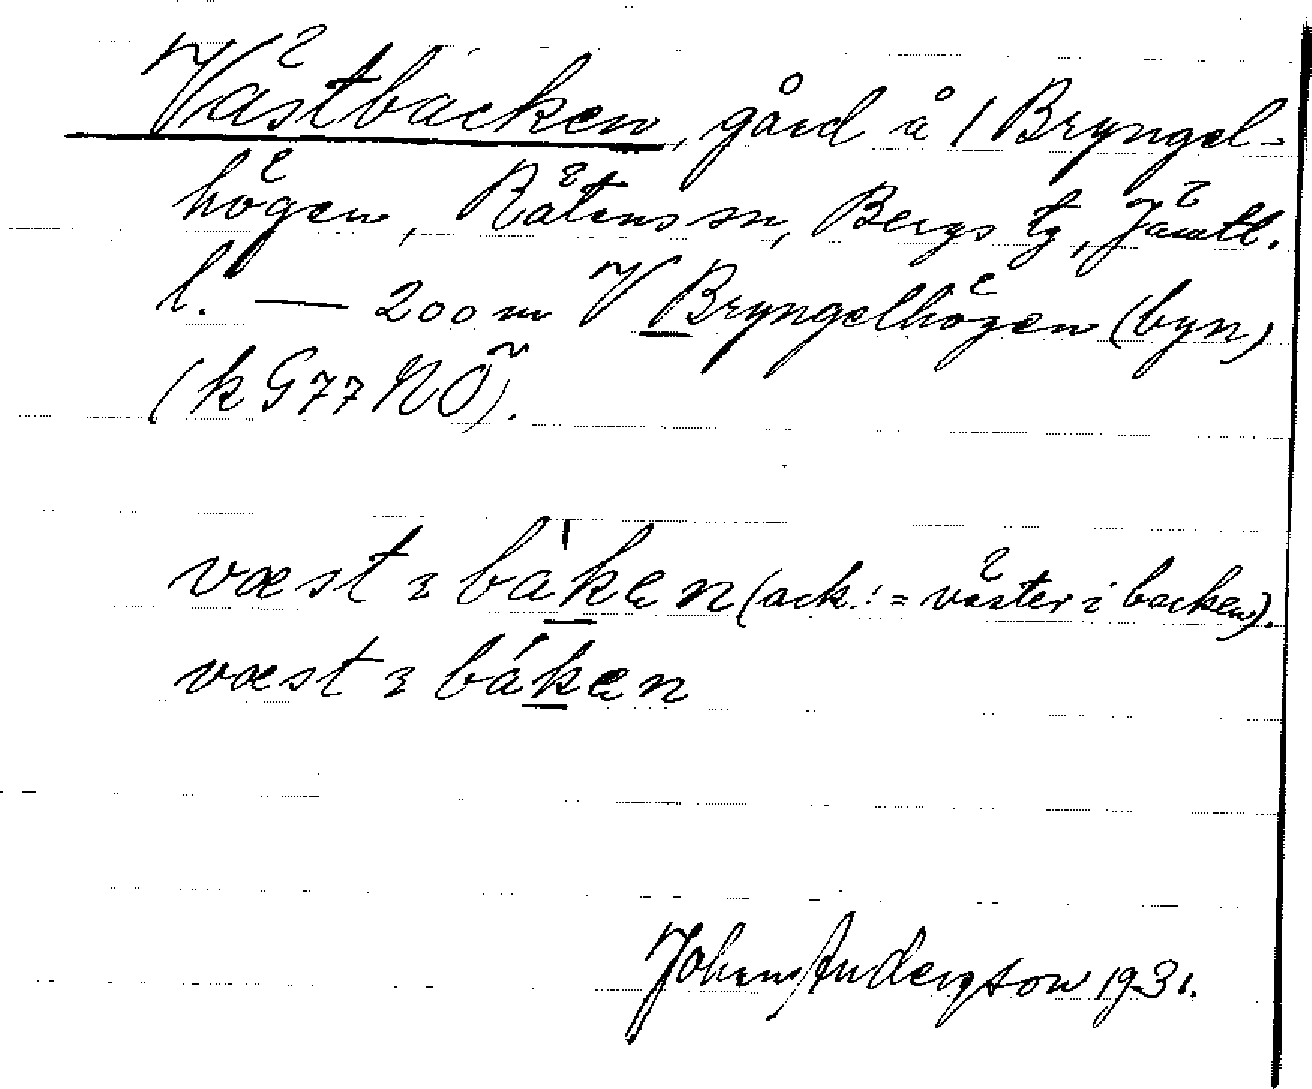 Västbacken, gård å 1 Bryngel-
högen, Rätans sn, Bergs tg, Jämtl.
l. — 200 m V Bryngelhögen (byn)
(k G77 NÖ).
væst ɜ bàken (ack.! = väster i backen).
væst ɜ báken
Johans Anderson 1931.